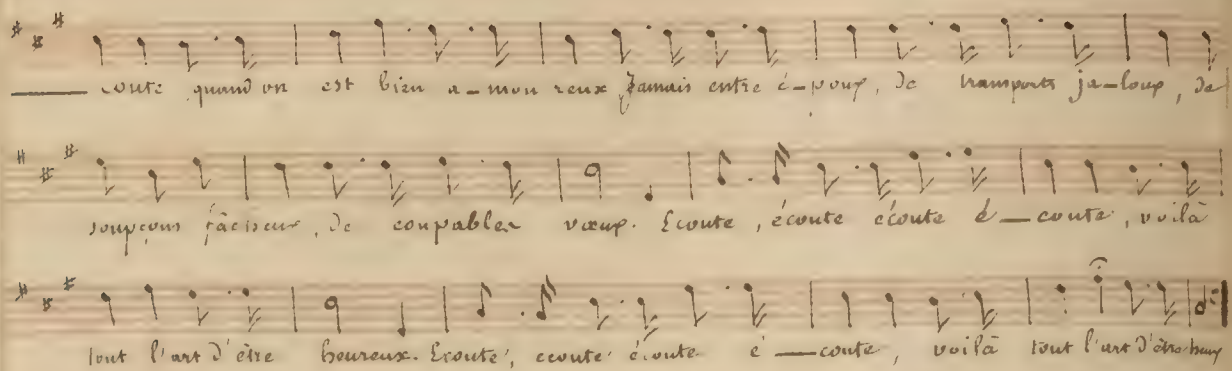 coute quand on est bien a-mou reux Jamais entre é-poux, de transports ja-loux, de
soupçons fâcheux, de coupables vœux. Ecoute, écoute écoute é-coute, voilà
tout l'art d'être heureux. Ecoute, ecoute écoute e-coute, voilà tout l'art d'être heux